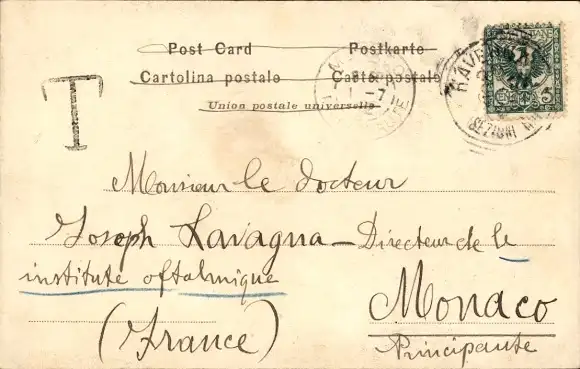 Post Card Postkarte
Cartolina postale Carte postale
Union postale universelle
T
RAVENNA
5
1 - 7
Monsieur le docteur
Joseph Lavagna — Directeur de le
institute oftalmique
Monaco
(France)
Principaute